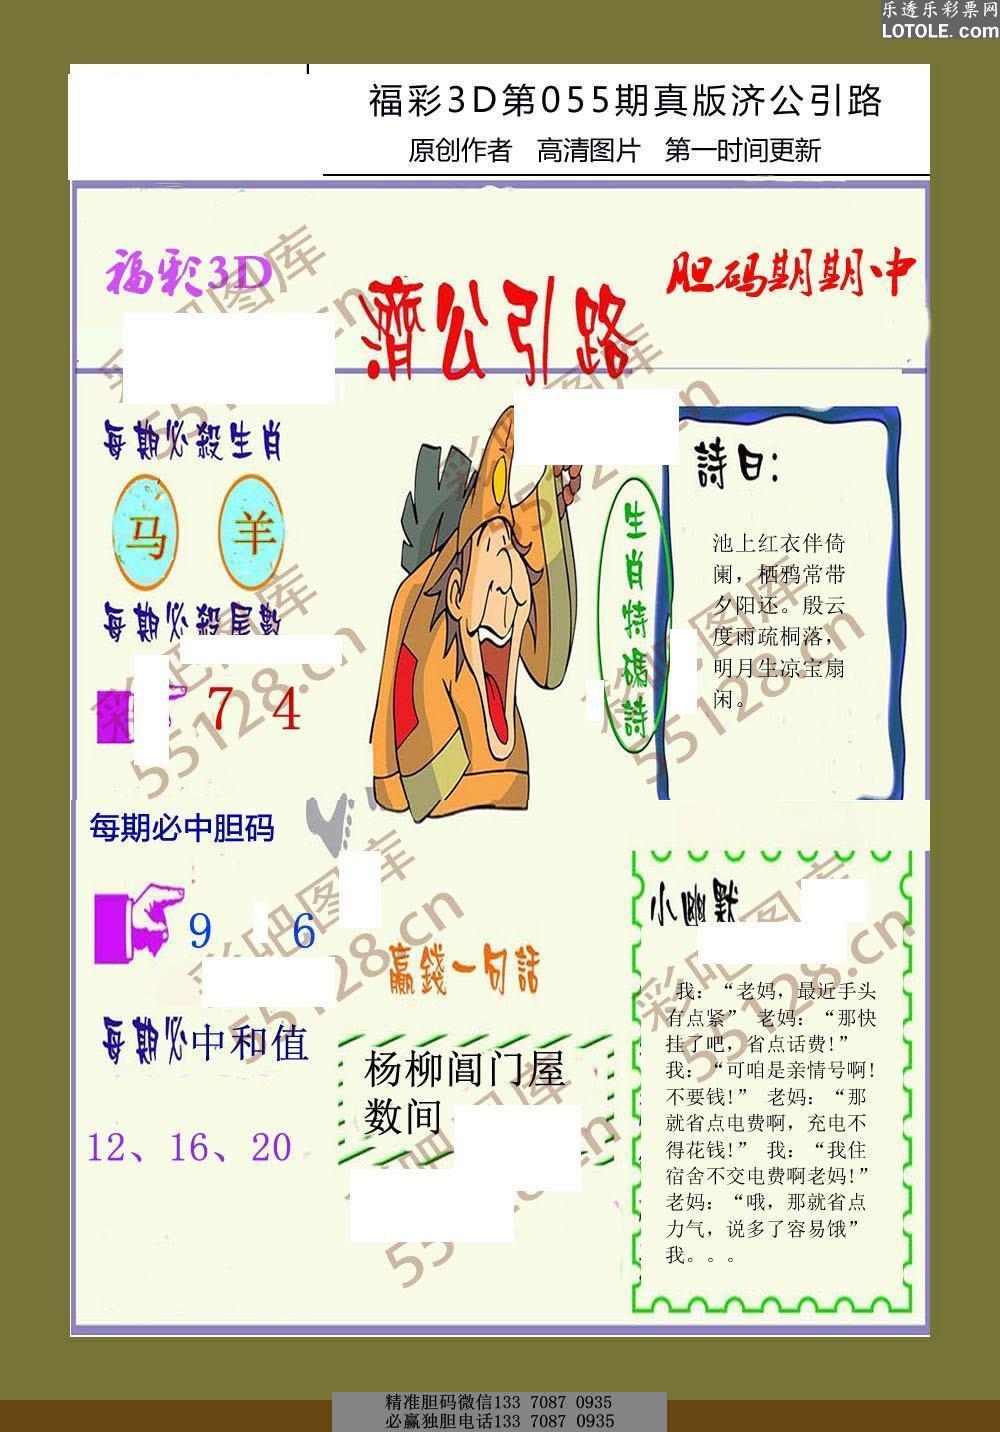 乐透乐彩票网
LOTOLE.com
福彩3D第055期真版济公引路
原创作者 高清图片 第一时间更新
福彩3D
濟公引路
胆码期期中
每期必殺生肖
马 羊
每期必殺尾數
7 4
每期必中胆码
9 6
每期必中和值
12、16、20
生肖特碼詩
詩曰：
池上红衣伴倚
阑，栖鸦常带
夕阳还。殷云
度雨疏桐落，
明月生凉宝扇
闲。
贏錢一句話
杨柳阊门屋
数间
小幽默
我：“老妈，最近手头
有点紧” 老妈：“那快
挂了吧，省点话费!”
我：“可咱是亲情号啊!
不要钱!” 老妈：“那
就省点电费啊，充电不
得花钱!” 我：“我住
宿舍不交电费啊老妈!”
老妈：“哦，那就省点
力气，说多了容易饿”
我。。。
彩吧图库
55128.cn
彩吧图库
55128.cn
彩吧图库
55128.cn
彩吧图库
55128.cn
精准胆码微信133 7087 0935
必赢独胆电话133 7087 0935